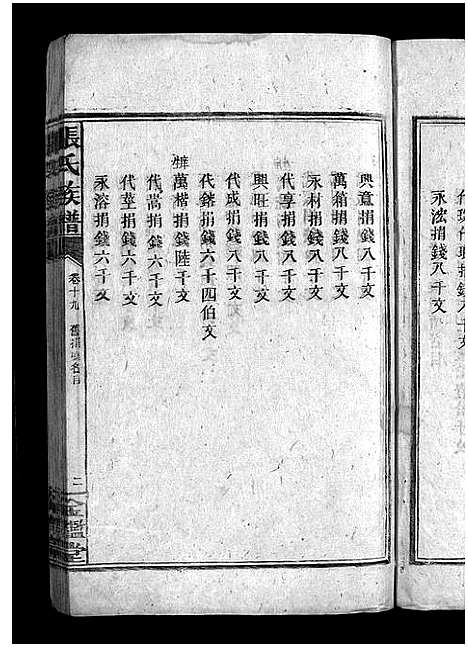 永浤捐錢八千文
興意捐錢八千文
萬箱捐錢八千文
永材捐錢八千文
代享捐錢八千文
興旺捐錢八千文
代成捐錢八千文
代鋍捐錢六千四伯文
萬楷捐錢陸千文
代嵩捐錢六千文
代莑捐錢六千文
永溶捐錢六千文
張氏族譜
卷十九
舊捐錢名目
二
金鑑堂